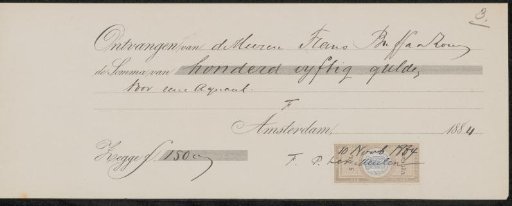 3.
Ontvangen van de Heeren Frans Buffa & Zonen
de Somma van honderd vyftig gulden
voor een Aquarel.
F
Amsterdam, 1884
10 Novb 1884
Zegge f 150,-
F. P.